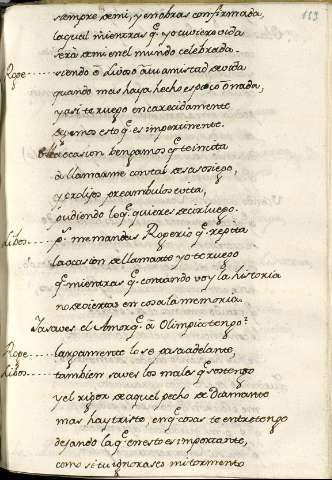 113
siempre de mi, y en obras confirmada,
la qual mientras q̃ yo tuviere vida
sera de mi en el mundo celebrada.
Roge ..... siendo
quando mas haya hecho
y asi te ruego encarecidamente
dejemos esto q̃ es impertinente.
ocasion bengamos q̃ te incita
a llamarme con tal desasosiego,
y prolijos preambulos evita,
pudiendo lo q̃ quieres decir luego.
Libos..... me mandas Rogerio q̃ repita
la ocasion de llamarte yo te ruego
q̃ mientras q̃ contando voy la historia
no diviertas en cosa la memoria.
Ya saves el Amor q̃ a Olimpia tengo
Roge ..... largamente lo se pasa adelante,
Libos..... tambien saves los males q̃ sostengo
y el rigor de aquel pecho de Diamante
mas hay triste, en q̃ cosas te entretengo
dejando la q̃ en esto es importante,
como si tu ignorases mi tormento